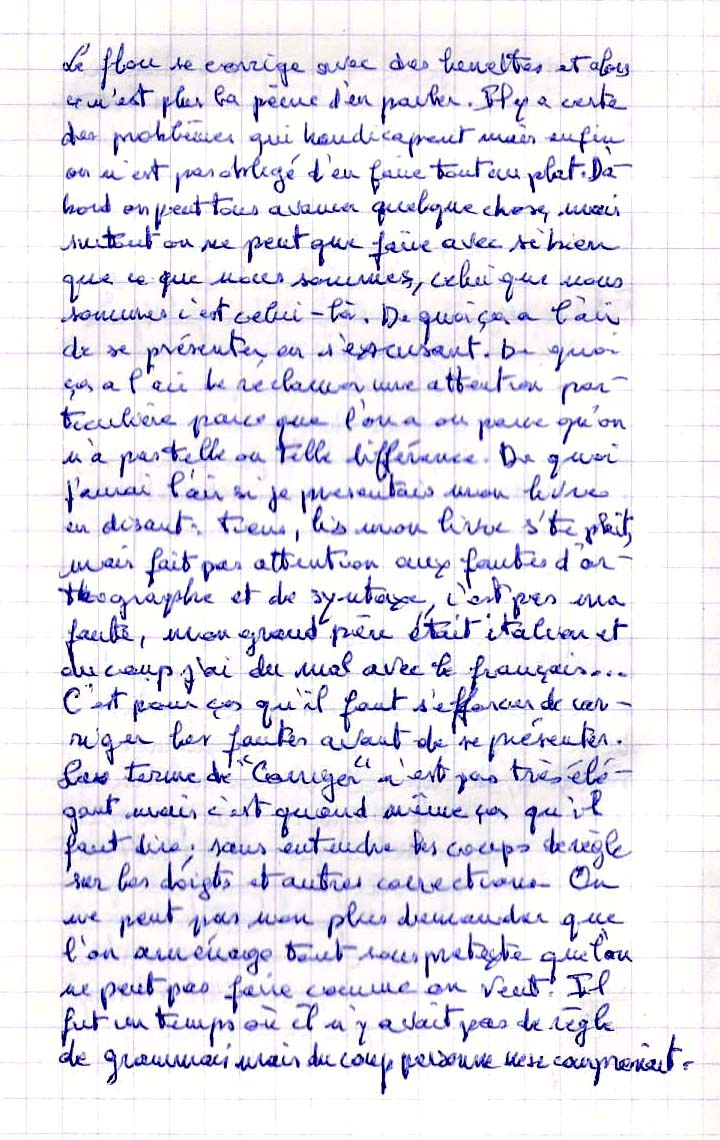 Le flou se corrige avec des lunettes et alors
ce n'est plus la peine d'en parler. Il y a certe
des problèmes qui handicapent mais enfin
on n'est pas obligé d'en faire tout un plat. Da-
bord on peut tous avancer quelque chose, mais
surtout on ne peut que faire avec si bien
que ce que nous sommes, celui que nous
sommes c'est celui-là. De quoi ça a l'air
de se présenter en s'excusant. De quoi
ça a l'air de réclamer une attention par-
ticulière parce que l'on a ou parce qu'on
n'a pas telle ou telle différence. De quoi
j'aurai l'air si je présentais mon livre
en disant: tiens, lis mon livre s'te plait,
mais fait pas attention aux fautes d'or-
thographe et de syntaxe, c'est pas ma
faute, mon grand père était italien et
du coup j'ai du mal avec le français...
C'est pour ça qu'il faut s'efforcer de cor-
riger les fautes avant de se présenter.
Le terme de "Corriger" n'est pas très élé-
gant mais c'est quand même ça qu'il
faut dire; sans entendre les coups de règle
sur les doigts et autres corrections. On
ne peut pas non plus demander que
l'on aménage tout sous pretexte que l'on
ne peut pas faire comme on veut. Il
fut un temps où il n'y avait pas de règle
de grammai mais du coup personne ne se comprenait.